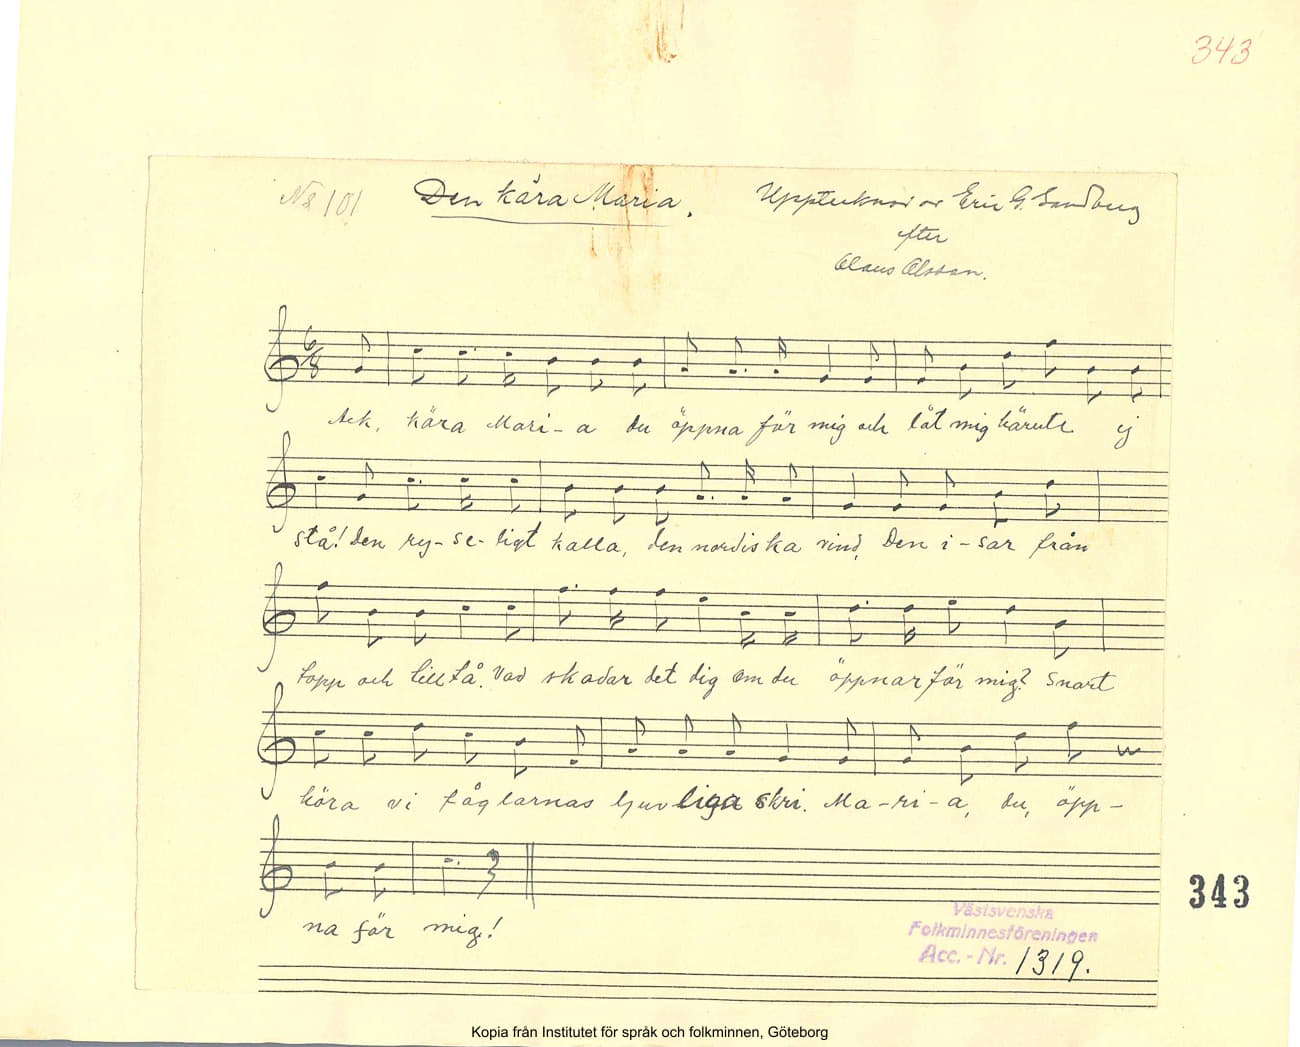 343
No 101 Den kära Maria. Upptecknad av Eric G. Sandberg
efter
Olaus Olsson.
6/8
Ack, kära Mari-a du öppna för mig och låt mig härute ej
stå! Den ry-se-ligt kalla, den nordiska vind, Den i-sar från
topp och till tå. Vad skadar det dig om du öppnar för mig? Snart
höra vi fåglarnas ljuvliga skri. Ma-ri-a, du, öpp-
343
na för mig!
Västsvenska
Folkminnesföreningen
Acc.-Nr. 1319.
Kopia från Institutet för språk och folkminnen, Göteborg